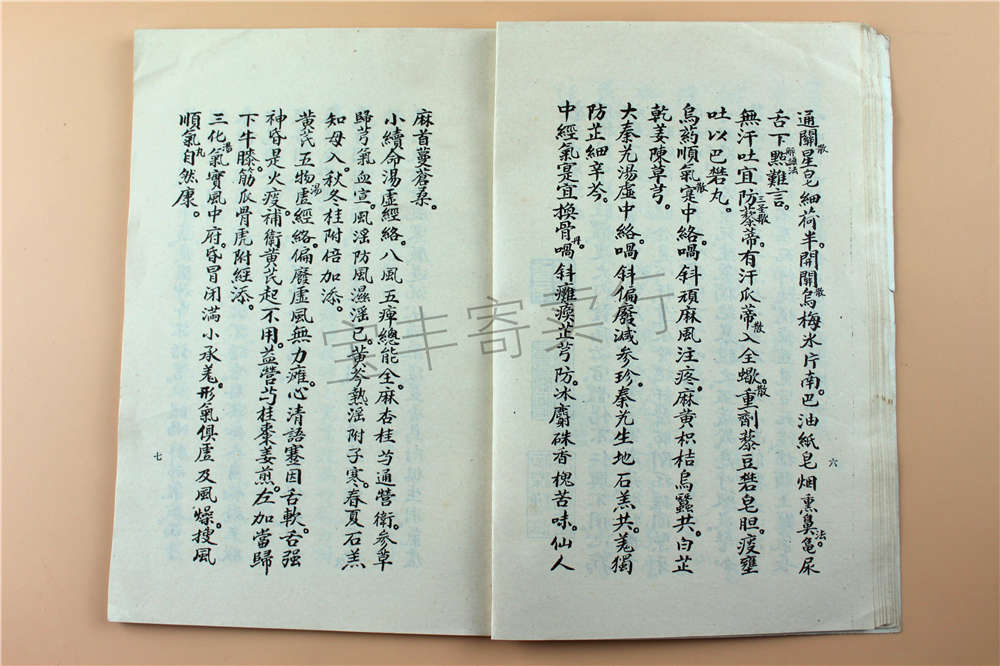 通關散星皂細荷半。開關散烏梅冰片南。巴油紙皂烟熏鼻法。龜尿
舌下點難言。解語法
無汗吐宜防三圣散藜蒂。有汗瓜蒂散入全蠍散。重劑藜豆礬皂胆。痰壅
吐以巴礬丸。
烏药順氣散寔中絡。喎斜頑麻風注疼。麻黃枳桔烏蠶共。白芷
乾姜陳草芎。
大秦艽湯虛中絡。喎斜偏廢減参珍。秦艽生地石羔共。羌獨
防芷細辛芩。
中經氣寔宜換骨丹。喎斜癱瘓芷芎防。冰麝硃香槐苦味。仙人
六
麻首蔓蒼桑。
小續命湯虛經絡。八風五痺總能全。麻杏桂芍通營衛。參草
歸芎氣血宣。風淫防風濕淫已。黃芩熱淫附子寒。春夏石羔
知母入。秋冬桂附倍加添。
黃芪五物湯虛經絡。偏廢虛風無力癱。心清語蹇因舌軟。舌强
神昏是火痰。補衛黃芪起不用。益營芍桂棗姜煎。左加當歸
下牛膝。筋瓜骨虎附經添。
三化湯氣實風中府。昏冒闭满小承羌。形氣俱虛及風燥。搜風
順氣丸自然康。
七
宝丰寄卖行